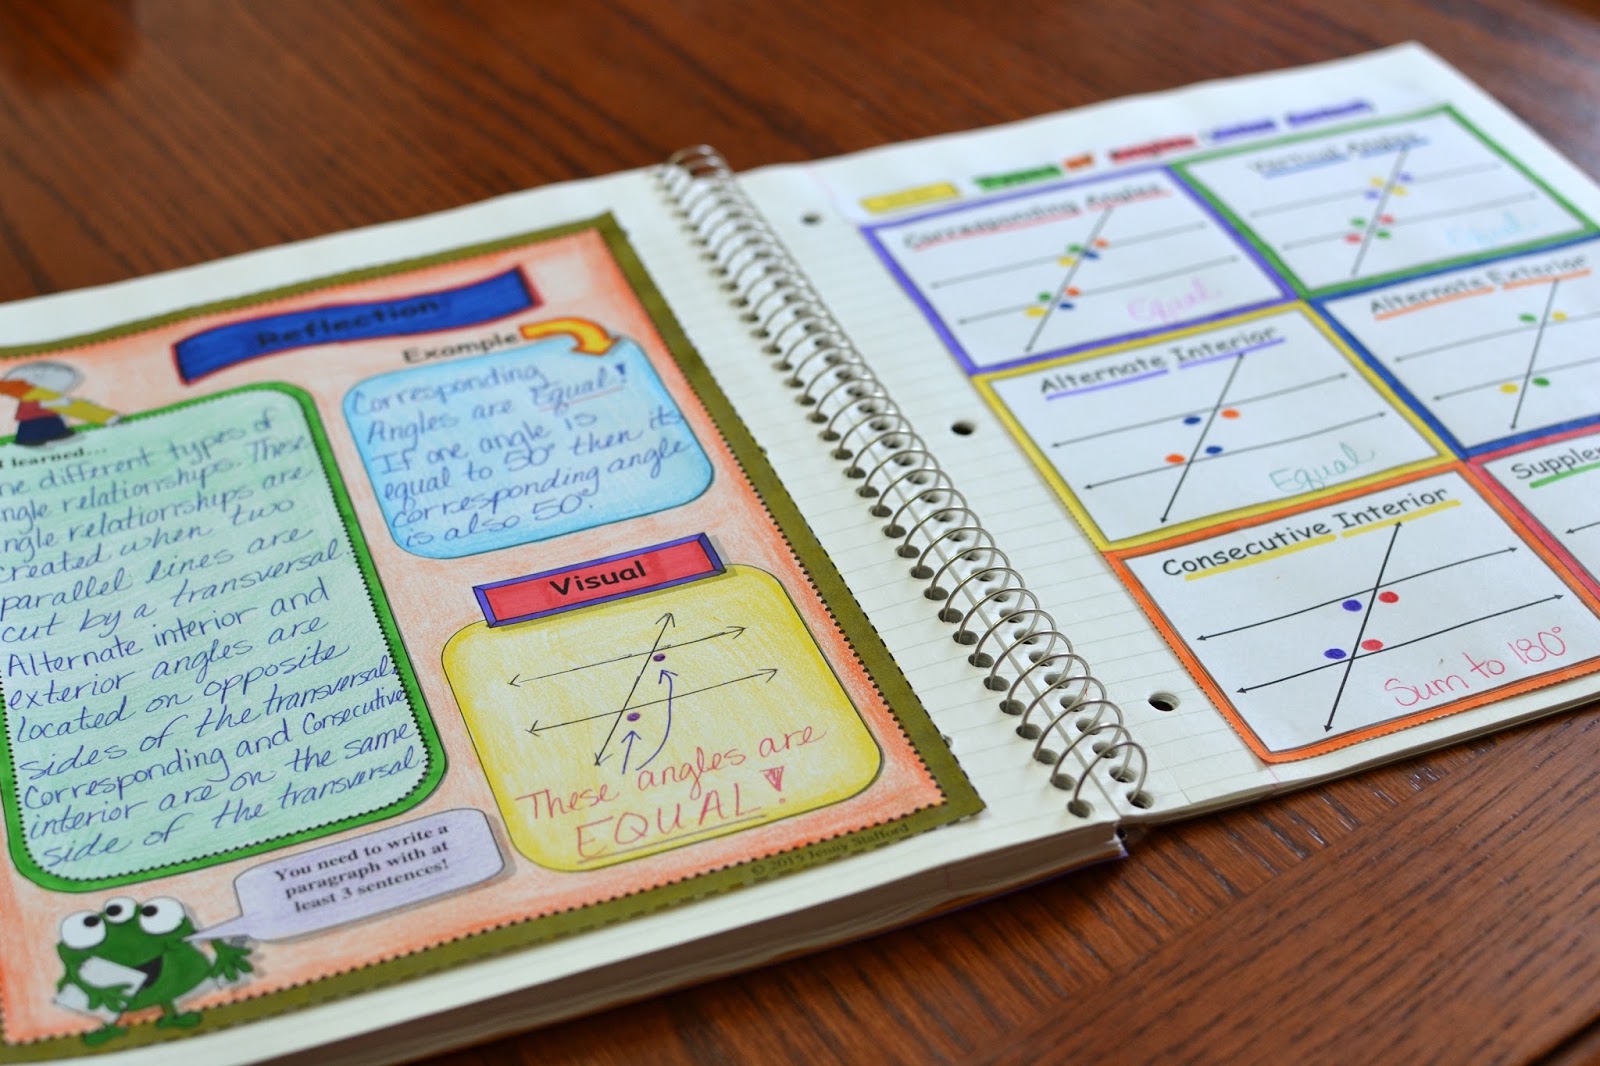 Reflection
Example
Corresponding
Angles are Equal!
If one angle is
equal to 50° then its
corresponding angle
is also 50°.
I learned...
different types of
angle relationships. These
angle relationships are
created when two
parallel lines are
cut by a transversal.
Alternate interior and
exterior angles are
located on opposite
sides of the transversal.
Corresponding and Consecutive
interior are on the same
side of the transversal.
Visual
These angles are
EQUAL!
You need to write a
paragraph with at
least 3 sentences!
© 2015 Jenny Stafford
Types of Angles
Corresponding Angles
Equal
Vertical Angles
Equal
Alternate Interior
Equal
Alternate Exterior
Consecutive Interior
Sum to 180°
Supplem